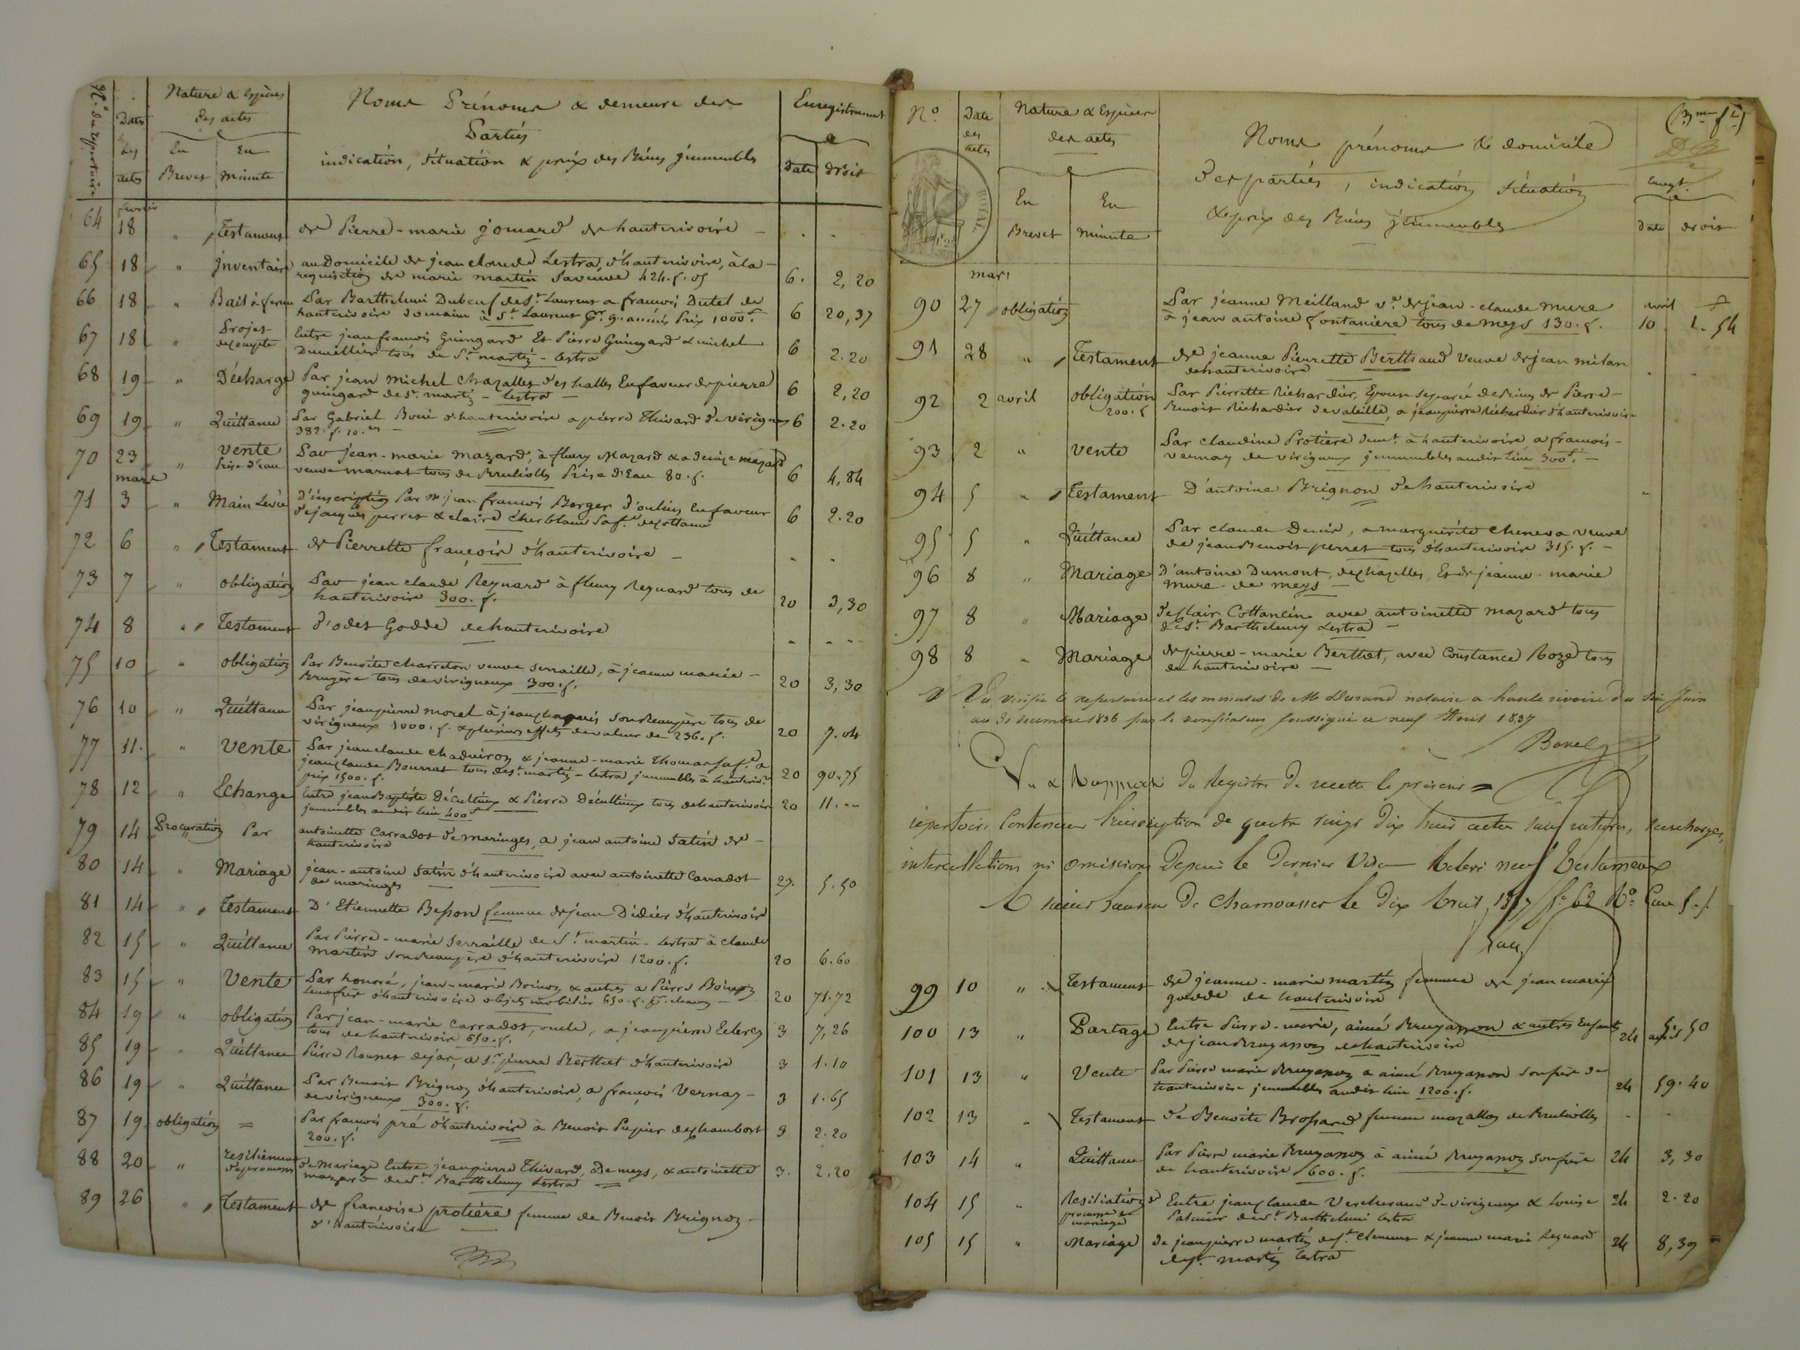 N.º du répertoire
Dates
des
actes
Nature & Espèces
des actes
En
Brevet
En
Minute
Noms Prénoms & demeure des
Parties
indication, Situation & prix des Biens jmmeubles
Enregistrement
Date
droit
février
64 18 " Testament de Pierre-marie jomard de hauterivoire - - -
65 18 " Inventaire au Domicile de jean claude Lestra, d'hauterivoire, à la
requisition de marie martin sa veuve 424.f.05 6. 2,20
66 18 " Bail à ferme Par Barthelemi Dubeuf de St. Laurent a francois Dutel de
hauterivoire domaine à St. Laurent pr. 9. années Prix 1000f. 6 20,37
67 18 " Projet
de compte Entre jean francois Guingard Et Pierre Guingard & michel
Dumeillier tous de St. martin-lestra 6 2.20
68 19 " Décharge Par jean Michel Chazalles des halles En faveur de pierre
guingard de St. martin-lestra 6 2,20
69 19 " Quittance Par Gabriel Boni d'hauterivoire a pierre Thivard de virigneux
382.f.10.es 6 2.20
70 23 " Vente
Prise d'eau Par jean-marie mazard, à fleury Mazard & a denise mazard
veuve marnat tous de Brulioles Prise d'Eau 80.f. 6 4,84
mars
71 3 " Main Levée d'inscription Par Mr. jean francois Berger d'oulins En faveur
de jacques perret & claire cherblanc sa fe. 6 2.20
72 6 " Testament de Pierrette françois d'hauterivoire - - -
73 7 " obligation Par jean claude Reynard à fleury Reynard tous de
hauterivoire 300.f. 20 3,30
74 8 " Testament d'odet Godde de hauterivoire - - -
75 10 " obligation Par Benoite Charreton veuve serraille, à jeanne marie
Bruyère tous de virigneux 300.f. 20 3,30
76 10 " Quittance Par jean pierre morel à jean son beaupère tous de
virigneux 1000.f. & plusieurs effets de valeur de 236.f. 20 7.04
77 11. " Vente Par jean claude Chadiéron & jeanne-marie Thomas sa fe. a
jean claude Bourrat tous de St. martin-lestra, jmmeubles à hauterivre.
prix 1500.f. 20 90.75
78 12 " Echange Entre jean Baptiste Décultieux & Pierre Décultieux tous de hauterivoire
jmmeubles au dit lieu 400f 20 11.--
79 14 Procuration Par antoinette Carradot de maringes, a jean antoine Satin de
hauterivoire
80 14 " Mariage jean-antoine Satin d'hauterivoire avec antoinette Carradot
de maringes 27. 5.50
81 14 " Testament D'Etiennette Besson femme de jean Didier d'hauterivoire
82 15 " Quittance Par Pierre-marie Serraille de St. martin-lestra à claude
Martin son beaupère d'hauterivoire 1200.f. 20 6.60
83 15 " Vente Par honoré, jean-marie Boinon & autres a Pierre Boinon
leur frère d'hauterivoire objets mobilier 650.f. pr. chacun 20 71.72
84 19 " obligation Par jean-marie Carradot, oncle, a jean pierre Leberg
tous de hauterivoire 650.f. 3 7,26
85 19 " Quittance Pierre Rousset dejar, a Sr. pierre Berthet d'hauterivoire 3 1.10
86 19 " Quittance Par Benoit Brignon d'hauterivoire, a françois Vernay
de virigneux 300.f. 3 1.65
87 19 obligation = Par françois pré d'hauterivoire à Benoit Papier de chambost
200.f. 3 2.20
88 20 " resiliement
de promesses de Mariage Entre jean pierre Thivard, De meys, & antoinette
mazard de St. Barthelemy lestra 3. 2,20
89 26 " Testament de francoise protière femme de Benoit Brignon
d'hauterivoire
(3me. f.)
No.
Date
des
actes
Nature & Espèces
des actes
En
Brevet
En
Minute
Noms prénoms & domicile
des parties, indication Situation
& prix des Biens jmmeubles
Enregt.
Date
droit
ROYAL
mars
90 27 obligation Par jeanne Meilland ve. de jean-claude Mure
à jean antoine fontanière tous de meys 130.f. avril
10 1.54
91 28 " Testament de jeanne Pierrette Berthaud veuve de jean milan
de hauterivoire - -
92 2 avril obligation
200.f Par Pierrette Richardier, Epouse separée de Biens de Pierre-
Benoit Richardier de valeille, a jean pierre Richardier d'hauterivoire
93 2 " Vente Par claudine Protière demt. à hauterivoire a francois
vernay de virigneux jmmeubles au dit lieu 300f.
94 5 " Testament D'antoine Brignon de hauterivoire
95 5 " Quittance Par claude Denis, a marguerite Chenevа veuve
de jean Benoit perret tous d'hauterivoire 315.f.
96 8 " Mariage d'antoine Dumont, de chazelles, Et de jeanne-marie
Mure de meys
97 8 " Mariage de clair Cottancin avec antoinette mazard tous
de St. Barthelemy Lestra
98 8 " Mariage de pierre-marie Berthet, avec Constance Roze tous
de hauterivoire
Vu vérifié le repertoire et les minutes de Me Durand notaire a haute rivoire du
au 31 decembre 1836 par le verificateur soussigné ce neuf Avril 1837
Borel
Vu & Rapporté du Registre de recette le présent
répertoire Contenant l'inscription de quatre vingt dix huit actes sans ratures, surcharges,
intercallations ni omissions depuis le dernier Visa Relevé neuf Testaments
à Saint Laurent De Chamousset le dix Avril 1837 fo. 62 Ro. Case 5.
99 10 " Testament de jeanne-marie martin femme de jean marie
godde de hauterivoire
100 13 " Partage Entre Pierre-marie, aimé Bruyasson & autres Enfants
de jean Bruyasson de hauterivoire 24 avril 5,50
101 13 " Vente Par Pierre marie Bruyasson a aimé Bruyasson son frère de
hauterivoire jmmeubles au dit lieu 1200.f. 24 59.40
102 13 Testament de Benoite Brossard femme mazallon de Brulioles - -
103 14 " Quittance Par Pierre marie Bruyasson à aimé Bruyasson son frère
de hauterivoire 600.f. 24 3,30
104 15 " Resiliation de
promesse de
mariage Entre jean claude Vercherand de virigneux & Louise
Paturier de St. Barthelemi lestra 24 2.20
105 15 " Mariage de jean pierre martin de St. Clement & jeanne marie Reynard
de St. martin lestra 24 8,39